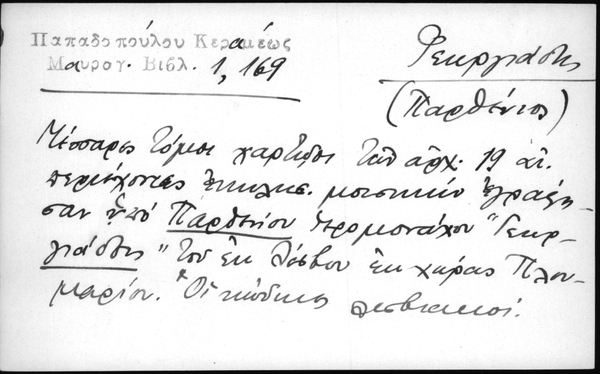 Παπαδοπούλου Κεραμέως
Μαυρογ. Βιβλ. 1, 169
Γεωργιάδης
(Παρθένιος)
Τέσσαρες τόμοι χαρτῷοι τῶν ἀρχ. 19 αἰ.
περιέχοντες ἐκκλησ. μουσικὴν ἐγράφη-
σαν ὑπὸ Παρθενίου ἱερομονάχου "Γεωρ-
γιάδης" τοῦ ἐκ Λέσβου ἐκ χώρας Πλου-
μαρίου. Οἱ κώδικες λεσβιακοί.